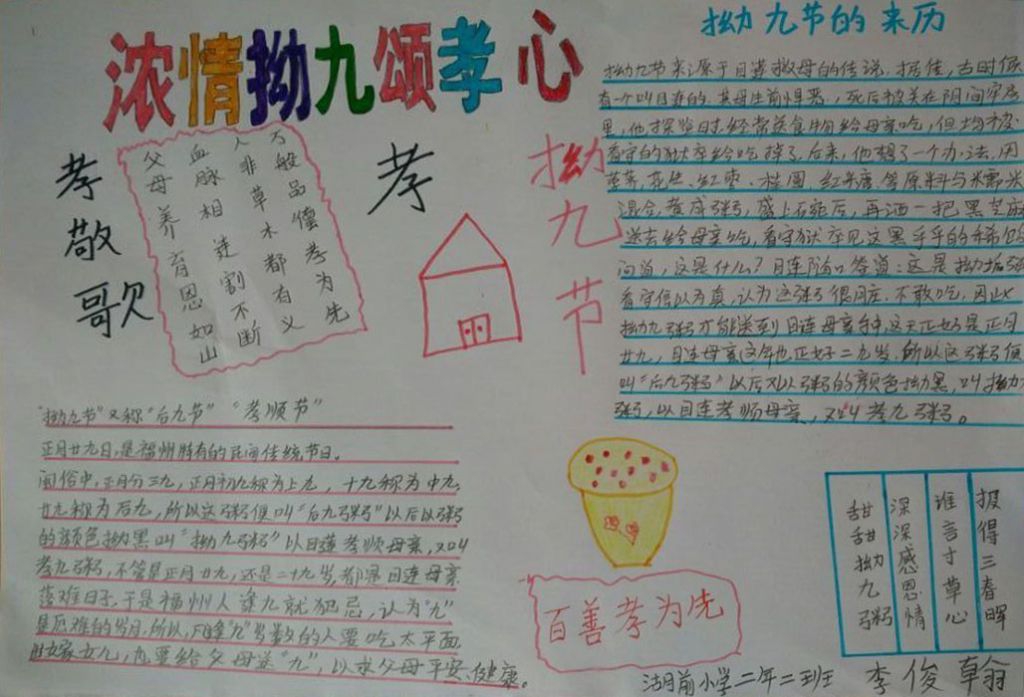 浓情拗九颂孝心
孝敬歌
万般品儒孝为先
人非草木都有义
血脉相连割不断
父母养育恩如山
孝
拗九节
拗九节的来历
拗九节来源于目莲救母的传说。据传，古时候
有一个叫目连的，其母生前悍恶，死后被关在阴间牢房
里，他探监时，经常送食物给母亲吃，但均被
看守的狱卒给吃掉了。后来，他想了一个办法，用
荸荠、花生、红枣、桂圆、红米唐等原料与米糯米
混合，煮成粥，盛上石碗后，再洒一把黑芝麻
送去给母亲吃，看守狱卒见这黑乎乎的
问道，这是什么？目连随口答道：这是拗垢粥
看守信以为真，认为这粥很，不敢吃，因此
拗九粥才能送到目连母亲手中，这天正好是正月
廿九，目连母亲这年也正好二九岁，所以这粥便
叫“后九粥”以后又以粥的颜色拗黑，叫拗九
粥，以目连孝顺母亲，又叫孝九粥。
“拗九节”又称“后九节”“孝顺节”
正月廿九日，是福州特有的民间传统节日。
闽俗中，正月分三九，正月初九称为上九，十九称为中九，
廿九称为后九，所以这粥便叫“后九粥”以后以粥
的颜色拗黑叫“拗九粥”以目莲孝顺母亲，又叫
孝九粥，不管是正月廿九，还是二十九岁，都是目连母亲
落难日子，于是福州人逢九就犯忌，认为“九”
是厄难的岁月，所以，凡逢“九”岁数的人要吃太平面
出嫁女儿，也要给父母送“九”，以求父母平安、健康。
百善孝为先
报得三春晖
谁言寸草心
深深感恩情
甜甜拗九粥
湖前小学二年二班
李俊翰